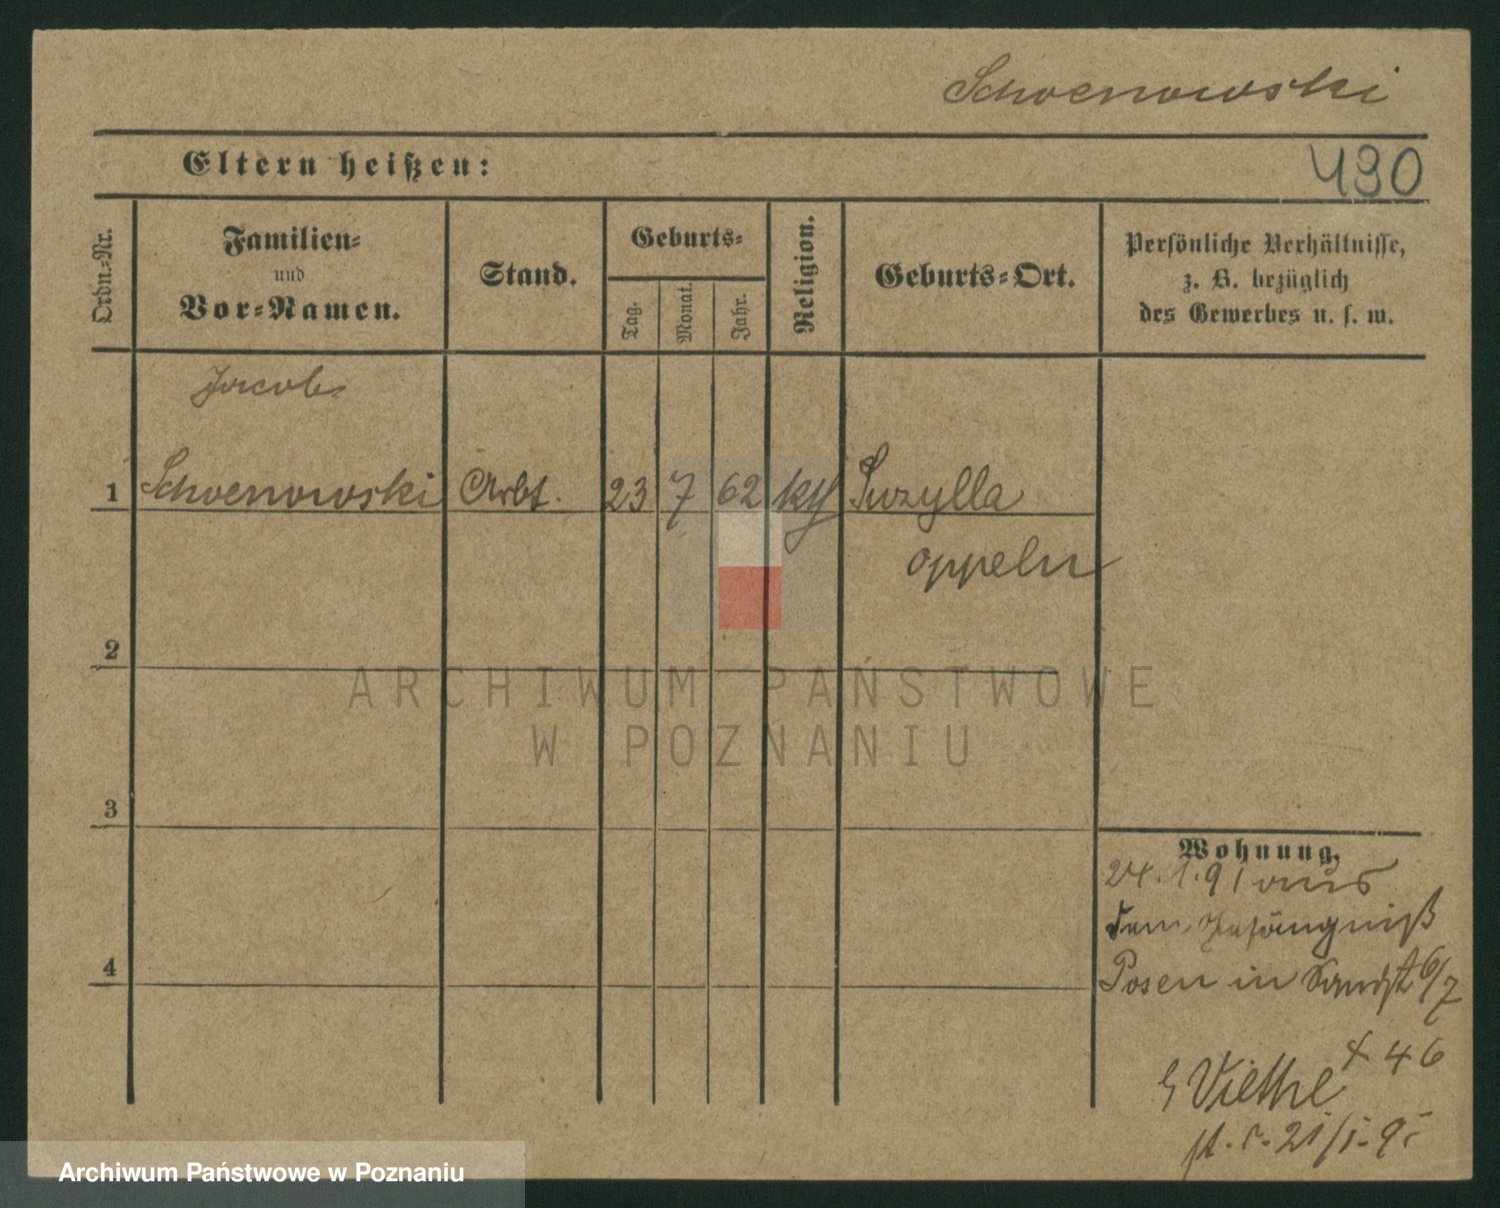 Schoenowski
Eltern heißen:
490
Ordn.=Nr.
Familien=
und
Vor=Namen.
Stand.
Geburts=
Tag.
Monat.
Jahr.
Religion.
Geburts=Ort.
Persönliche Verhältnisse,
z. B. bezüglich
des Gewerbes u. s. w.
Jacob
1 Schoenowski Arbt. 23 7 62 kth
Oppeln
2
ARCHIWUM PAŃSTWOWE
W POZNANIU
3
Wohnung.
24.1.91 aus
dem Gefängniß
Posen in Sandst 6/7
46
Viethe
21/1.
4
Archiwum Państwowe w Poznaniu